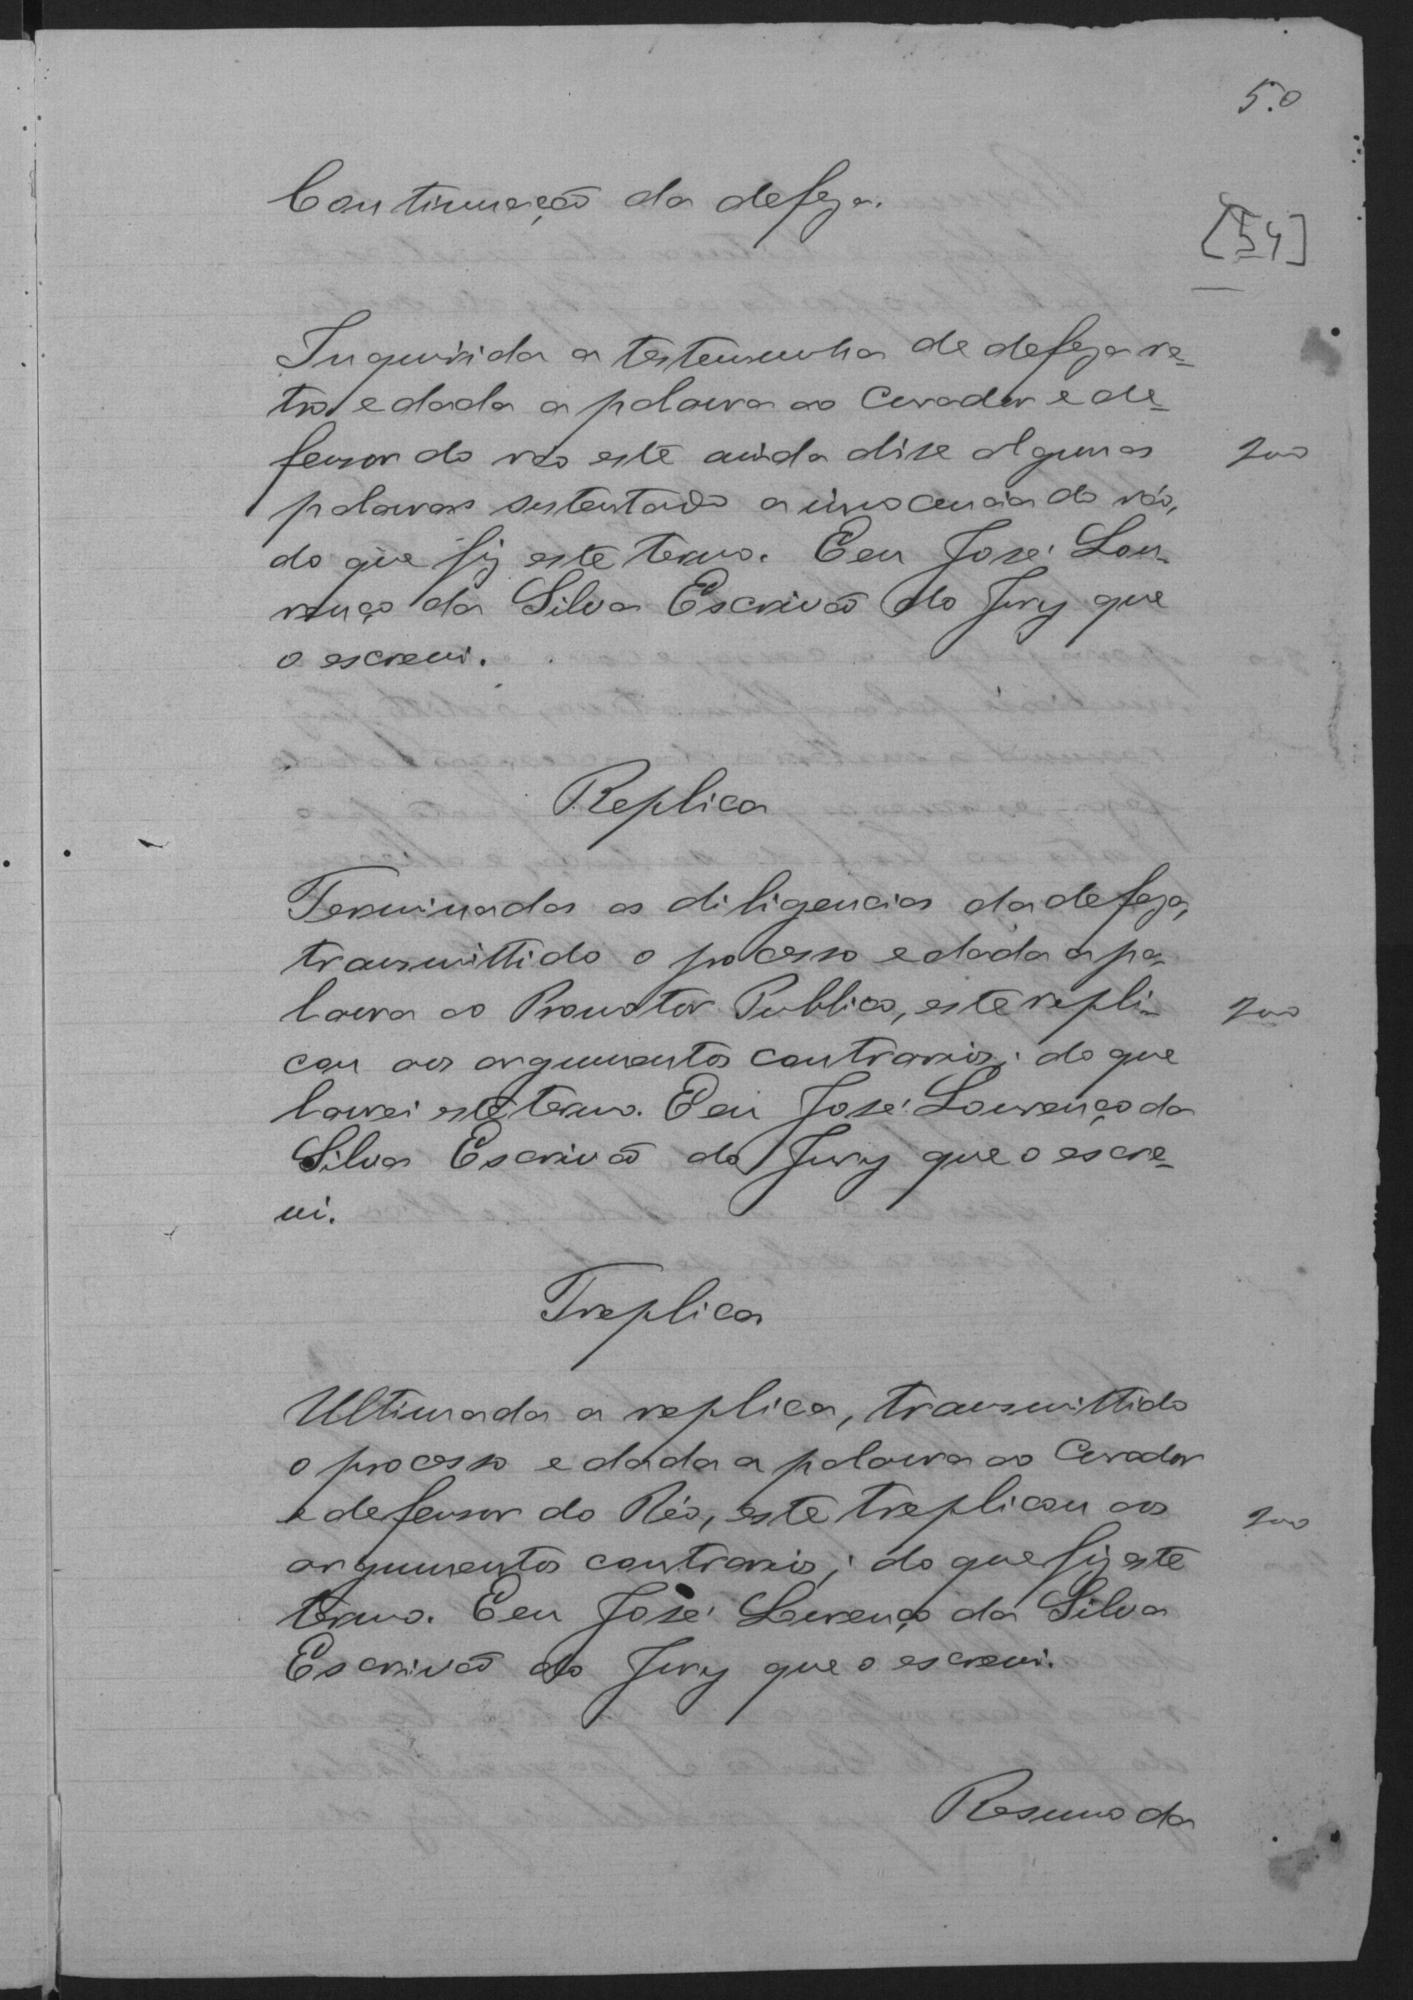 50
Continuação da defeza.
[54]
Inquirida a testemunha de defeza re-
tro e dada a palavra ao Curador e de-
fensor do réo este ainda disse algumas
200
palavras sustentando a innocencia do réo,
do que fiz este termo. E eu José Lou-
renço da Silva Escrivão do Jury que
o escrevi.
Replica
Terminadas as diligencias da defeza,
transmittido o processo e dada a pa-
lavra ao Promotor Publico, este repli-
200
cou aos argumentos contrarios; do que
lavrei este termo. E eu José Lourenço da
Silva Escrivão do Jury que o escre-
vi.
Treplica
Ultimada a replica, transmittido
o processo e dada a palavra ao Curador
e defensor do Réo, este treplicou aos
200
argumentos contrarios; do que fiz este
termo. E eu José Lourenço da Silva
Escrivão do Jury que o escrevi.
Resumo da